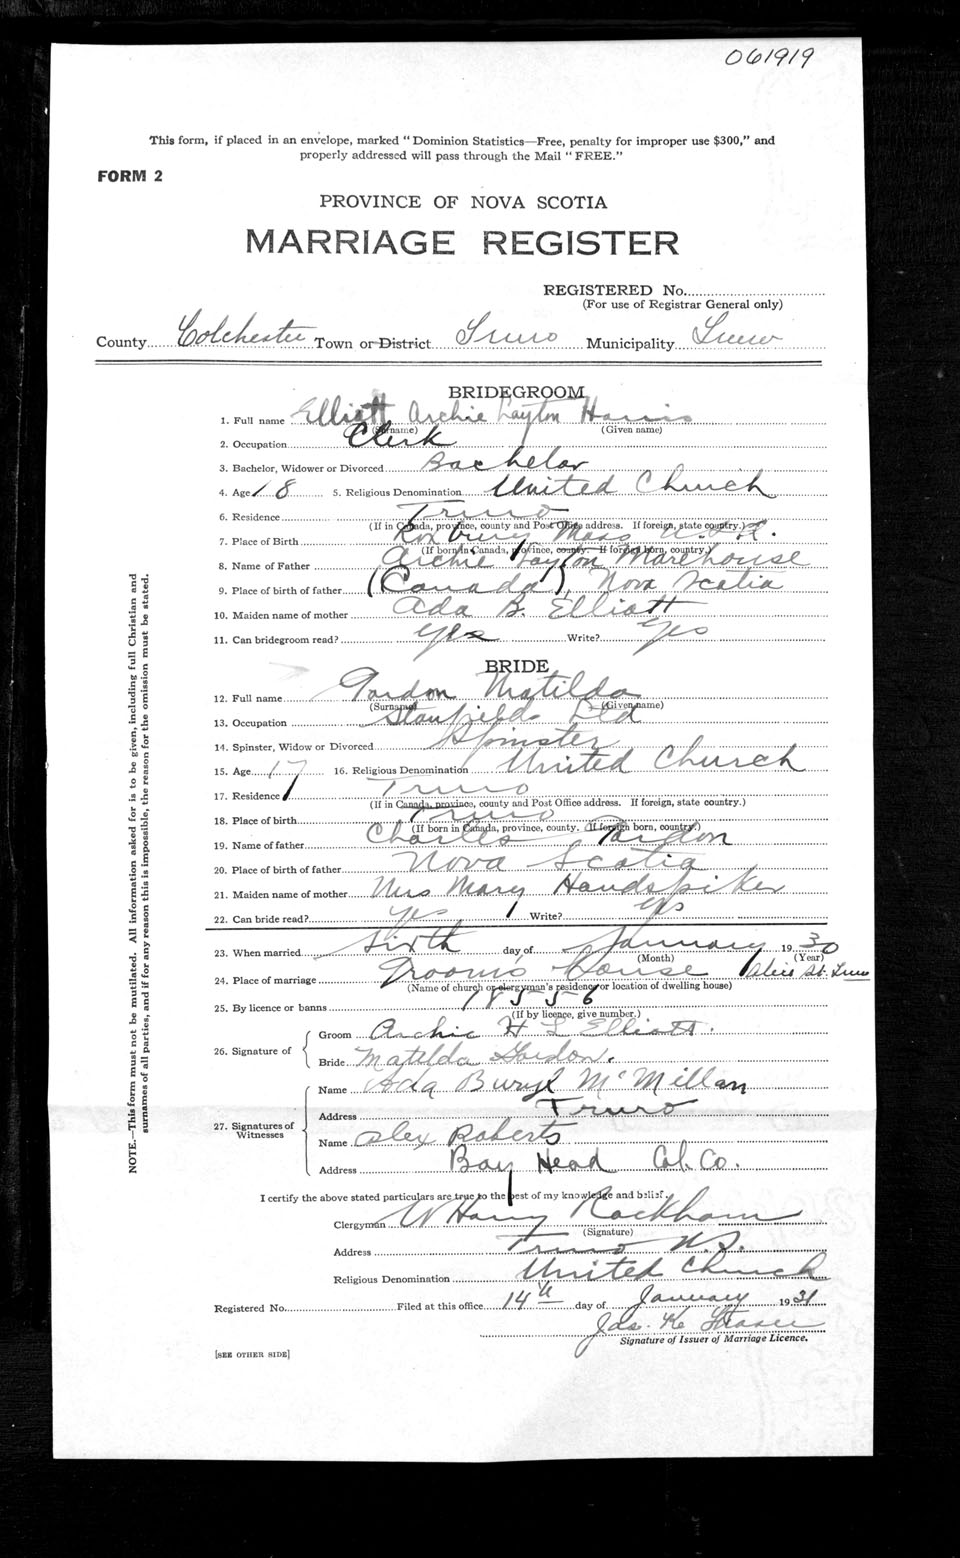 061919
This form, if placed in an envelope, marked “Dominion Statistics—Free, penalty for improper use $300,” and
properly addressed will pass through the Mail “FREE.”
FORM 2
PROVINCE OF NOVA SCOTIA
MARRIAGE REGISTER
REGISTERED No.
(For use of Registrar General only)
County Colchester Town or District Truro Municipality Truro
BRIDEGROOM
1. Full name Elliott Archie Layton Harris
(Surname) (Given name)
2. Occupation Clerk
3. Bachelor, Widower or Divorced Bachelor
4. Age 18 5. Religious Denomination United Church
6. Residence Truro
(If in Canada, province, county and Post Office address. If foreign, state country.)
7. Place of Birth Roxbury Mass U.S.A.
(If born in Canada, province, county. If foreign born, country.)
8. Name of Father Archie Layton Marehouse
9. Place of birth of father (Canada) Nova Scotia
10. Maiden name of mother Ada B. Elliott
11. Can bridegroom read? Yes Write? Yes
BRIDE
12. Full name Gordon Matilda
(Surname) (Given name)
13. Occupation Stanfields Ltd
14. Spinster, Widow or Divorced Spinster
15. Age 17 16. Religious Denomination United Church
17. Residence Truro
(If in Canada, province, county and Post Office address. If foreign, state country.)
18. Place of birth Truro
(If born in Canada, province, county. If foreign born, country.)
19. Name of father Charles Gordon
20. Place of birth of father Nova Scotia
21. Maiden name of mother Mrs Mary Handspiker
22. Can bride read? Yes Write? Yes
23. When married Sixth day of January 1930
(Month) (Year)
24. Place of marriage Groom's House Alice St. Truro
(Name of church or clergyman's residence or location of dwelling house)
25. By licence or banns 18556
(If by licence, give number.)
26. Signature of
Groom Archie H L Elliott.
Bride Matilda Gordon.
27. Signatures of Witnesses
Name Ada Buryl McMillan
Address Truro
Name Alex Roberts
Address Bay Head Col. Co.
I certify the above stated particulars are true to the best of my knowledge and belief.
Clergyman W Harry Rackham
(Signature)
Address Truro N.S.
Religious Denomination United Church
Registered No. Filed at this office 14th day of January 1931
Jas. K Fraser
Signature of Issuer of Marriage Licence.
[SEE OTHER SIDE]
NOTE.—This form must not be mutilated. All information asked for is to be given, including full Christian and
surnames of all parties, and if for any reason this is impossible, the reason for the omission must be stated.